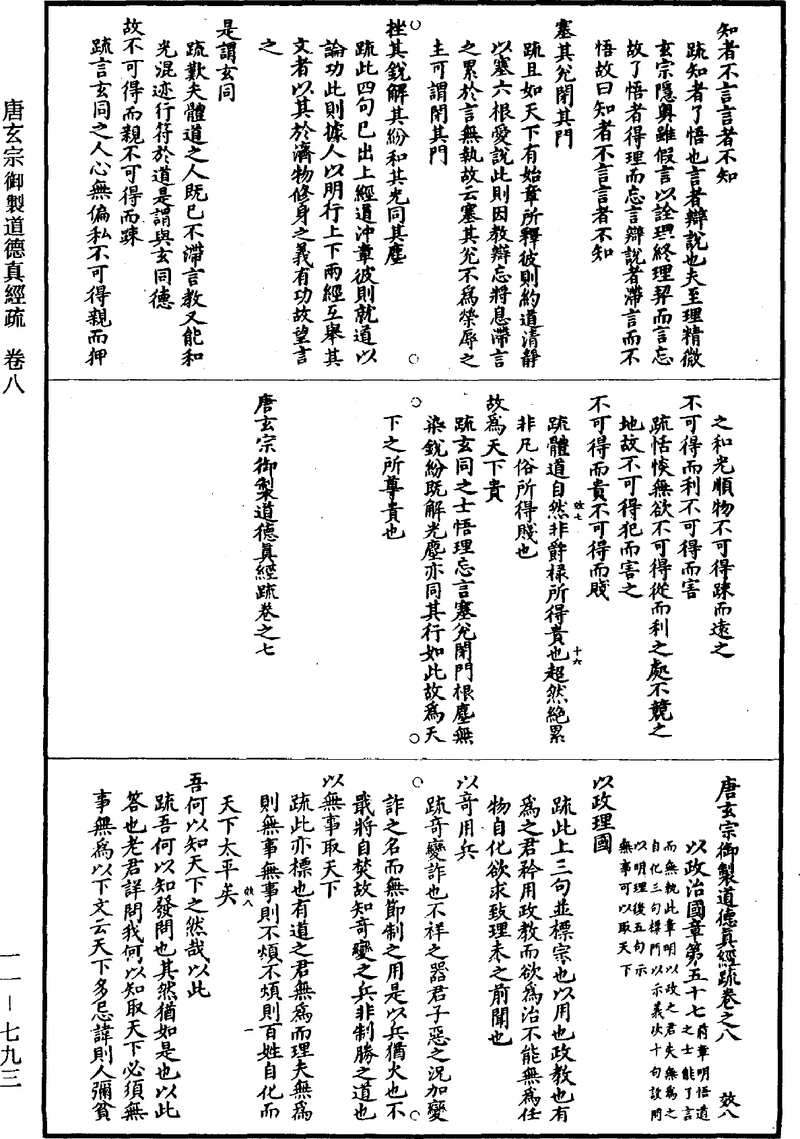 知者不言言者不知
疏知者了悟也言者辯說也夫至理精微
玄宗隱奧雖假言以詮理終理契而言忘
故了悟者得理而忘言辯說者滯言而不
悟故曰知者不言言者不知
塞其兊閉其門
疏且如天下有始章所釋彼則約道清靜
以塞六根愛說此則因教辯忘將息滯言
之累於言無執故云塞其兊不為榮辱之
主可謂閉其門
挫其銳解其紛和其光同其塵
疏此四句已出上經道沖章彼則就道以
論功此則據人以明行上下兩經互舉其
文者以其於濟物修身之義有功故望言
之
是謂玄同
疏歎夫體道之人既已不滯言教又能和
光混迹行符於道是謂與玄同德
故不可得而親不可得而踈
疏言玄同之人心無偏私不可得親而狎
之和光順物不可得踈而遠之
不可得而利不可得而害
疏恬惔無欲不可得從而利之處不競之
地故不可得犯而害之
不可得而貴不可得而賤
疏體道自然非爵祿所得貴也超然絶累
非凡俗所得賤也
效七
十六
故為天下貴
疏玄同之士悟理忘言塞兊閉門根塵無
染銳紛既解光塵亦同其行如此故為天
下之所尊貴也
唐玄宗御製道德真經疏卷之七
唐玄宗御製道德真經疏卷之八
效八
以政治國章第五十七
前章明悟道之士能了言
而無執此章明以政之君失無為之
自化三句標門以示義次十句設問
以明理後五句示
無事可以取天下
以政理國
疏此上三句並標宗也以用也政教也有
為之君矜用政教而欲為治不能無為任
物自化欲求致理未之前聞也
以奇用兵
疏奇變詐也不祥之器君子惡之況加變
詐之名而無節制之用是以兵猶火也不
戢將自焚故知奇變之兵非制勝之道也
以無事取天下
疏此亦標也有道之君無為而理夫無為
則無事無事則不煩不煩則百姓自化而
天下太平矣
效八
一
吾何以知天下之然哉以此
疏吾何以知發問也其然猶如是也以此
答也老君詳問我何以知取天下必須無
事無為以下文云天下多忌諱則人彌貧
唐玄宗御製道德真經疏 卷八
一一－七九三